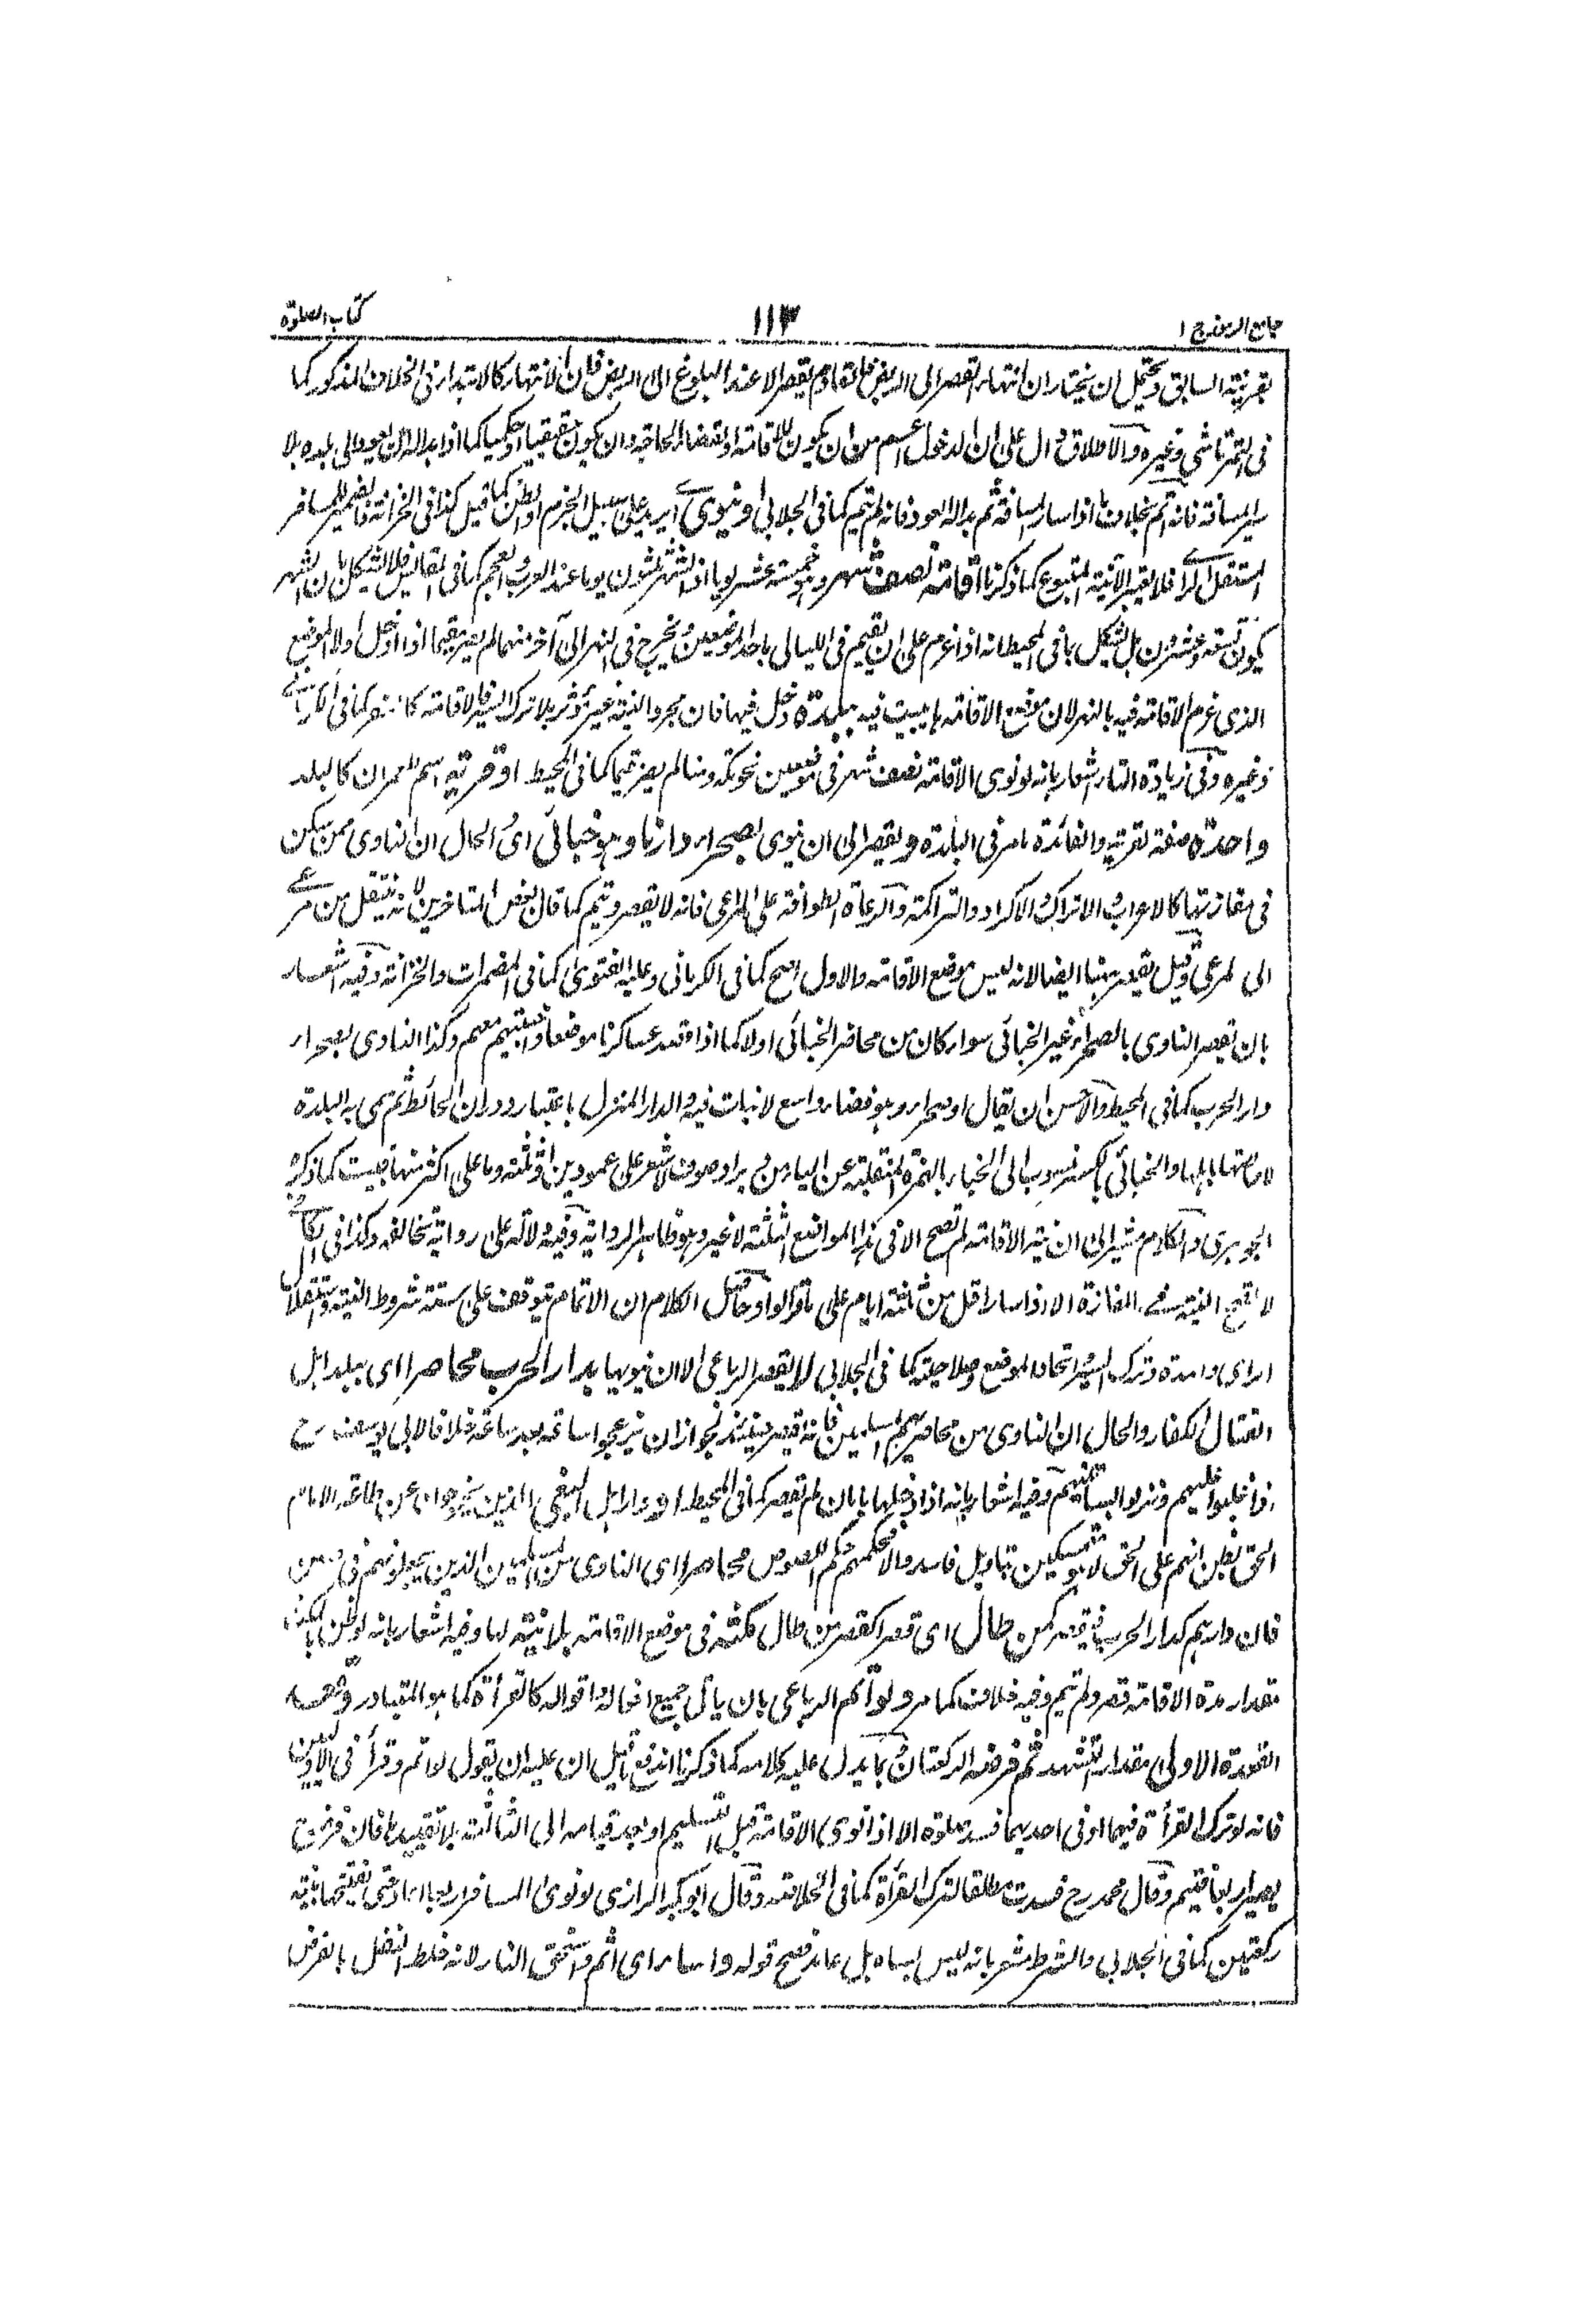 جامع الرموز ج ١
١١٣
كتاب الصلوة
بقرينة السابق ويحتمل ان يختار ان انتهاء القصر الى الربض فالقادم يقصر الا عند البلوغ الى الربض فان الانتهاء كالابتداء فى الخلاف المذكور كما
فى التمرتاشى وغيره والاطلاق دال على ان الدخول اعم من ان يكون للاقامة او لقضاء الحاجة وان يكون حقيقيا او حكميا كما اذا بدا له ان يعود الى بلده بلا
سير المسافة فانه اتم بخلاف ما اذا سار المسافة ثم بدا له العود فانه لم يتم كما فى الجلابى او ينوى اى يريد على سبيل الجزم او الظن كما قيل كذا فى الخزانة فالضمير للمسافر
المستقل رأيا فلا يعتبر الا نية المتبوع كما ذكرنا اقامة نصف شهر وهو خمسة عشر يوما اذ الشهر ثلثون يوما عند العرب والعجم كما فى المقاليس فلا يشكل بان الشهر
يكون تسعة وعشرين بل يشكل بما فى المحيط انه اذا عزم على ان يقيم فى الليالى باحد الموضعين ويخرج فى النهر الى آخر منهما لم يصر مقيما اذا دخل اولا الموضع
الذى عزم الاقامة فيه بالنهر لان موضع الاقامة ما يبيت فيه ببلدة دخل فيها فان مجرد النية غير مؤثر بلا ترك السفر فالاقامة
وغيره وفى زيادة التاء اشعار بانه لو نوى الاقامة نصف شهر فى موضعين نحو مكة ومنا لم يصر مقيما كما فى المحيط او قرية اسم العمران كالبلد
واحدة صفة لقرية والفائدة تامر فى البلدة ويقصر الى ان ينوى بصحراء دارنا وهو خبائى اى والحال ان الناوى ممن يسكن
فى مفازتها كالاعراب والاتراك والاكراد والتراكمة والرعاة الطوافة على المراعى فانه لا يقصر ويتم كما قال بعض المتاخرين لانه ينتقل من مرعى
الى مرعى وقيل يقصر ههنا ايضا لانه ليس موضع الاقامة والاول اصح كما فى الكرمانى وعليه الفتوى كما فى المضمرات والخزانة وفيه اشعار
بان يقصر الناوى بالصحراء غير الخبائى سواء كان من محاضر الخبائى اولا كما اذا قصد عساكرنا موضعا وخيمتهم معهم وكذا الناوى بصحراء
دار الحرب كما فى المحيط والاحسن ان يقال او صحراء وهو فضاء واسع لا نبات فيه والدار المنزل باعتبار دوران الحائط ثم سمى به البلدة
لاحاطتها باهلها والخبائى بالكسر منسوب الى الخباء بالهمزة المنقلبة عن الياء من وبر او صوف لا شعر على عمودين او ثلثة وما على اكثر منها فبيت كما ذكره
الجوهرى والكلام مشير الى ان نية الاقامة لم تصح الا فى هذه المواضع الثلثة لا غير وهو ظاهر الرواية وفيه دلالة على رواية تخالفه وكذا فى
لا تصح النية فى المفازة الا اذا سار اقل من ثلثة ايام على ما قالوا وحاصل الكلام ان الاتمام يتوقف على ستة شروط النية واستقلال
الراى والمدة وترك السير واتحاد الموضع وصلاحيته كما فى الجلابى لا يقصر الرباعى الا ان نيوبها بدار الحرب محاصرا اى ببلد اهل
القتال الكفار والحال ان الناوى من محاصريهم المسلمين فانه يقصر حينئذ لجواز ان ينزعجوا ساعة بعد ساعة خلافا لابى يوسف رح
اذا غلبوا عليهم ونزلوا بساتينهم وفيه اشعار بانه اذا دخلها بامان لم يقصر كما فى المحيط او دار اهل البغى الذين يخرجون عن طاعة الامام
الحق بظن انهم على الحق لا هو متمسكين بتاويل فاسد والا فحكمهم حكم اللصوص محاصرا اى الناوى من المسلمين الذين يحاصرونهم فى
فان دارهم كدار الحرب فيقصر كمن طال اى قصر كقصر من طال مكثه فى موضع الاقامة بلا نية لها وفيه اشعار بانه لو ظن
مقدار مدة الاقامة قصر ولم يتم وفيه خلاف كما مر ولو اتم الرباعى بان ياتى جميع افعاله واقواله كالقراءة كما هو المتبادر وقعد
القعدة الاولى مقدار التشهد تم فرضه الركعتان بما يدل عليه كلامه كما ذكرنا اندفع ما قيل ان عليه ان يقول لو اتم وقرأ فى الاوليين
فانه لو ترك القراءة فيهما او فى احديهما فسد صلوة الا اذا نوى الاقامة قبل التسليم او بعد قيامه الى الثالثة بلا تقييدها فان فرضه
يصير اربعا فيتم وقال محمد رح فسدت مطلقا لترك القراءة كما فى الخلاصة وقال ابو بكر الرازى لو نوى المسافر اربعا اعاد حتى يفتتحها بنية
ركعتين كما فى الجلابى والشرط مشعر بانه ليس بساه بل عامد فصح قوله واساء اى اثم واستحق النار لانه خلط النفل بالفرض